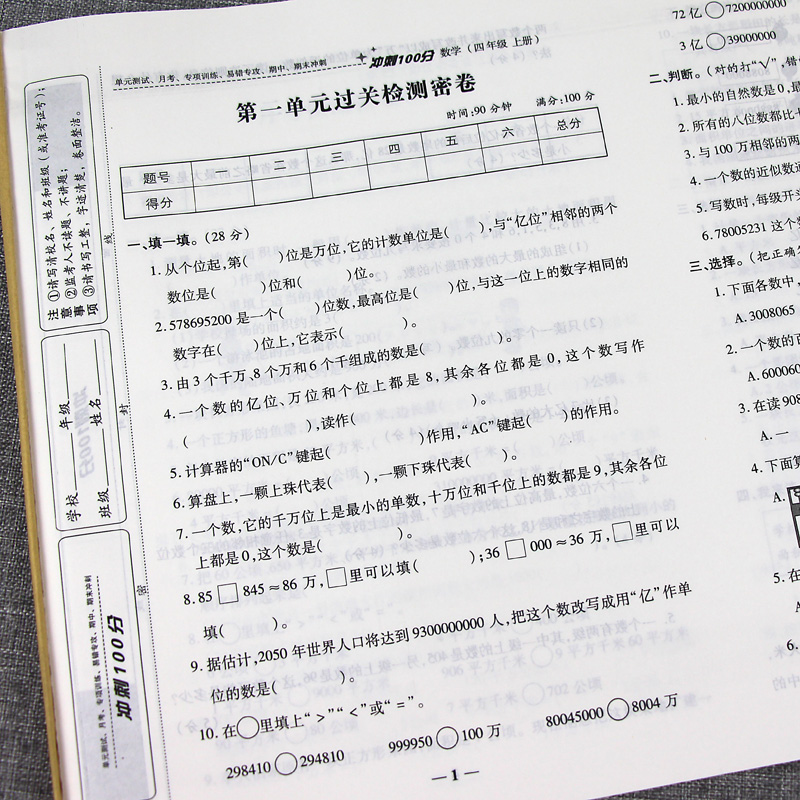 单元测试、月考、专项训练、易错专攻、期中、期末冲刺 冲刺100分 数学(四年级 上册)
第一单元过关检测密卷
时间:90 分钟 满分:100 分
题号 一 二 三 四 五 六 总分
得分
一、填一填。(28 分)
1. 从个位起,第( )位是万位,它的计数单位是( ),与“亿位”相邻的两个
数位是( )位和( )位。
2. 578695200 是一个( )位数,最高位是( )位,与这一位上的数字相同的
数字在( )位上,它表示( )。
3. 由 3 个千万,8 个万和 6 个千组成的数是( )。
4. 一个数的亿位、万位和个位上都是 8,其余各位都是 0,这个数写作
( ),读作( )。
5. 计算器的“ON/C”键起( )作用,“AC”键起( )的作用。
6. 算盘上,一颗上珠代表( ),一颗下珠代表( )。
7. 一个数,它的千万位上是最小的单数,十万位和千位上的数都是 9,其余各位
上都是 0,这个数是( )。
8. 85□845≈86 万,□里可以填( );36□000≈36 万,□里可以
填( )。
9. 据估计,2050 年世界人口将达到 9300000000 人,把这个数改写成用“亿”作单
位的数是( )。
10. 在○里填上“>”“<”或“=”。
298410○294810 999950○100 万 80045000○8004 万
—1—
72 亿○7200000000
3 亿○39000000
二、判断。(对的打“√”,错
1. 最小的自然数是 0,最
2. 所有的八位数都比
3. 与 100 万相邻的两
4. 一个数的近似数
5. 写数时,每级开
6. 78005231 这个
三、选择。(把正确
1. 下面各数中,
A. 3008065
2. 一个数的百
A. 60060
3. 在读 908
A. 一
4. 下面算
A.
5. 在
注意事项
①请写清校名、姓名和班级(或准考证号);
②监考人不读题、不讲题;
③请书写工整,字迹清楚,卷面整洁。
学校 年级
班级 姓名
线
封
密
单元测试、月考、专项训练、易错专攻、期中、期末冲刺
冲刺100分